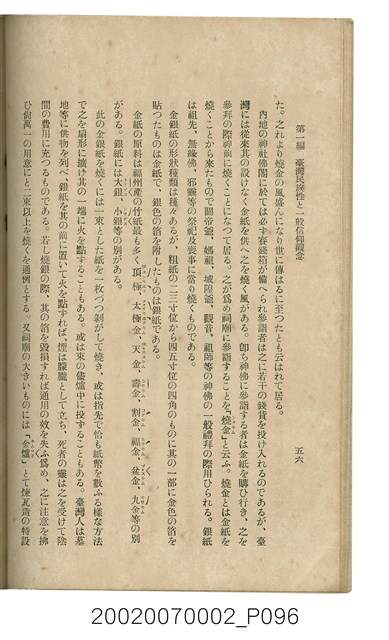 第一編　臺灣民族性と一般信仰觀念
五六
た。之れより燒金の風盛んになり世に傳はるに至つたとも云はれて居る。
內地の神社佛閣に於ては必ず賽錢箱が備へられ參詣者は之に若干の錢貨を投け入れるのであるが、臺
灣には從來其の設けなく金紙を供へ之を燒く風がある。卽ち神佛に參詣する者は金紙を購ひ行き、之を
參拜の際神前に燒くことになつて居る。之が爲め祠廟に參詣することを「燒金」と云ふ。燒金とは金紙を
燒くことから來たもので關帝爺、媽祖、城隍爺、觀音、祖師等の神佛の一般禮拜の際用ひられる。銀紙
は祖先、無緣佛、邪靈等の祭祀及喪事に當り燒くものである。
金銀紙の形狀種類は種々あるが、粗紙の二三寸位から四五寸位の四角のものに其の一部に金色の箔を
貼つたものは金紙で、銀色の箔を附したものは銀紙である。
金紙の原料は福州產の竹紙最も多く、頂極、太極金、天金、壽金、割金、福金、盆金、九金等の別
がある。銀紙には大銀、小銀等の別がある。
此の金銀紙を燒くには一束とした紙を一枚づつ剝がして燒き、或は指先で恰も紙幣を數ふる樣な方法
で之を扇形に擴け其の一端に火を點ずることもある。或は束の儘爐中に投ずることもある。臺灣人は墓
地等に供物を列べ、銀紙を其の前に置いて火を點ずれば、煙は朦朧として立ち、死者の靈は之を受けて陰
間の費用に充つるものである。若し燒銀の際、其の箔を毀損すれば通用の效を失ふ爲め、之に注意を拂
ひ尙萬一の用意にと二束以上を燒くを通例とする。又祠廟の大きいものには「金爐」とて煉瓦造の特設
20020070002_P096